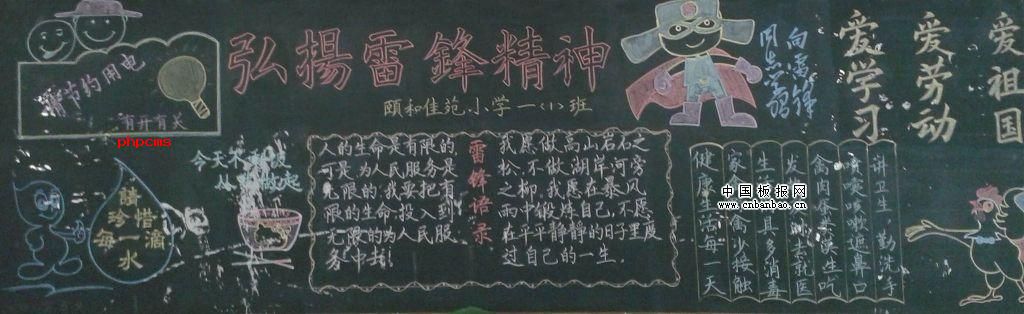 弘揚雷鋒精神
颐和佳苑小学一(1)班
请节约用电
有开有关
phpcms
請
珍惜
每一滴
水
今天不
人的生命是有限的
可是,为人民服务是
无限的,我要把有
限的生命,投入到
无限的为人民服
务中去!
雷锋语录
我愿做高山岩石之
松,不做湖岸河旁
之柳。我愿在暴风
雨中锻炼自己,不愿
在平平静静的日子里度
过自己的一生。
向雷锋
同志
爱学习
爱劳动
爱祖国
中国板报网
www.cnbanbao.cn
讲卫生,勤洗手
喷嚏咳嗽遮鼻口
禽肉
生
多消毒
少接触
健康生活每一天